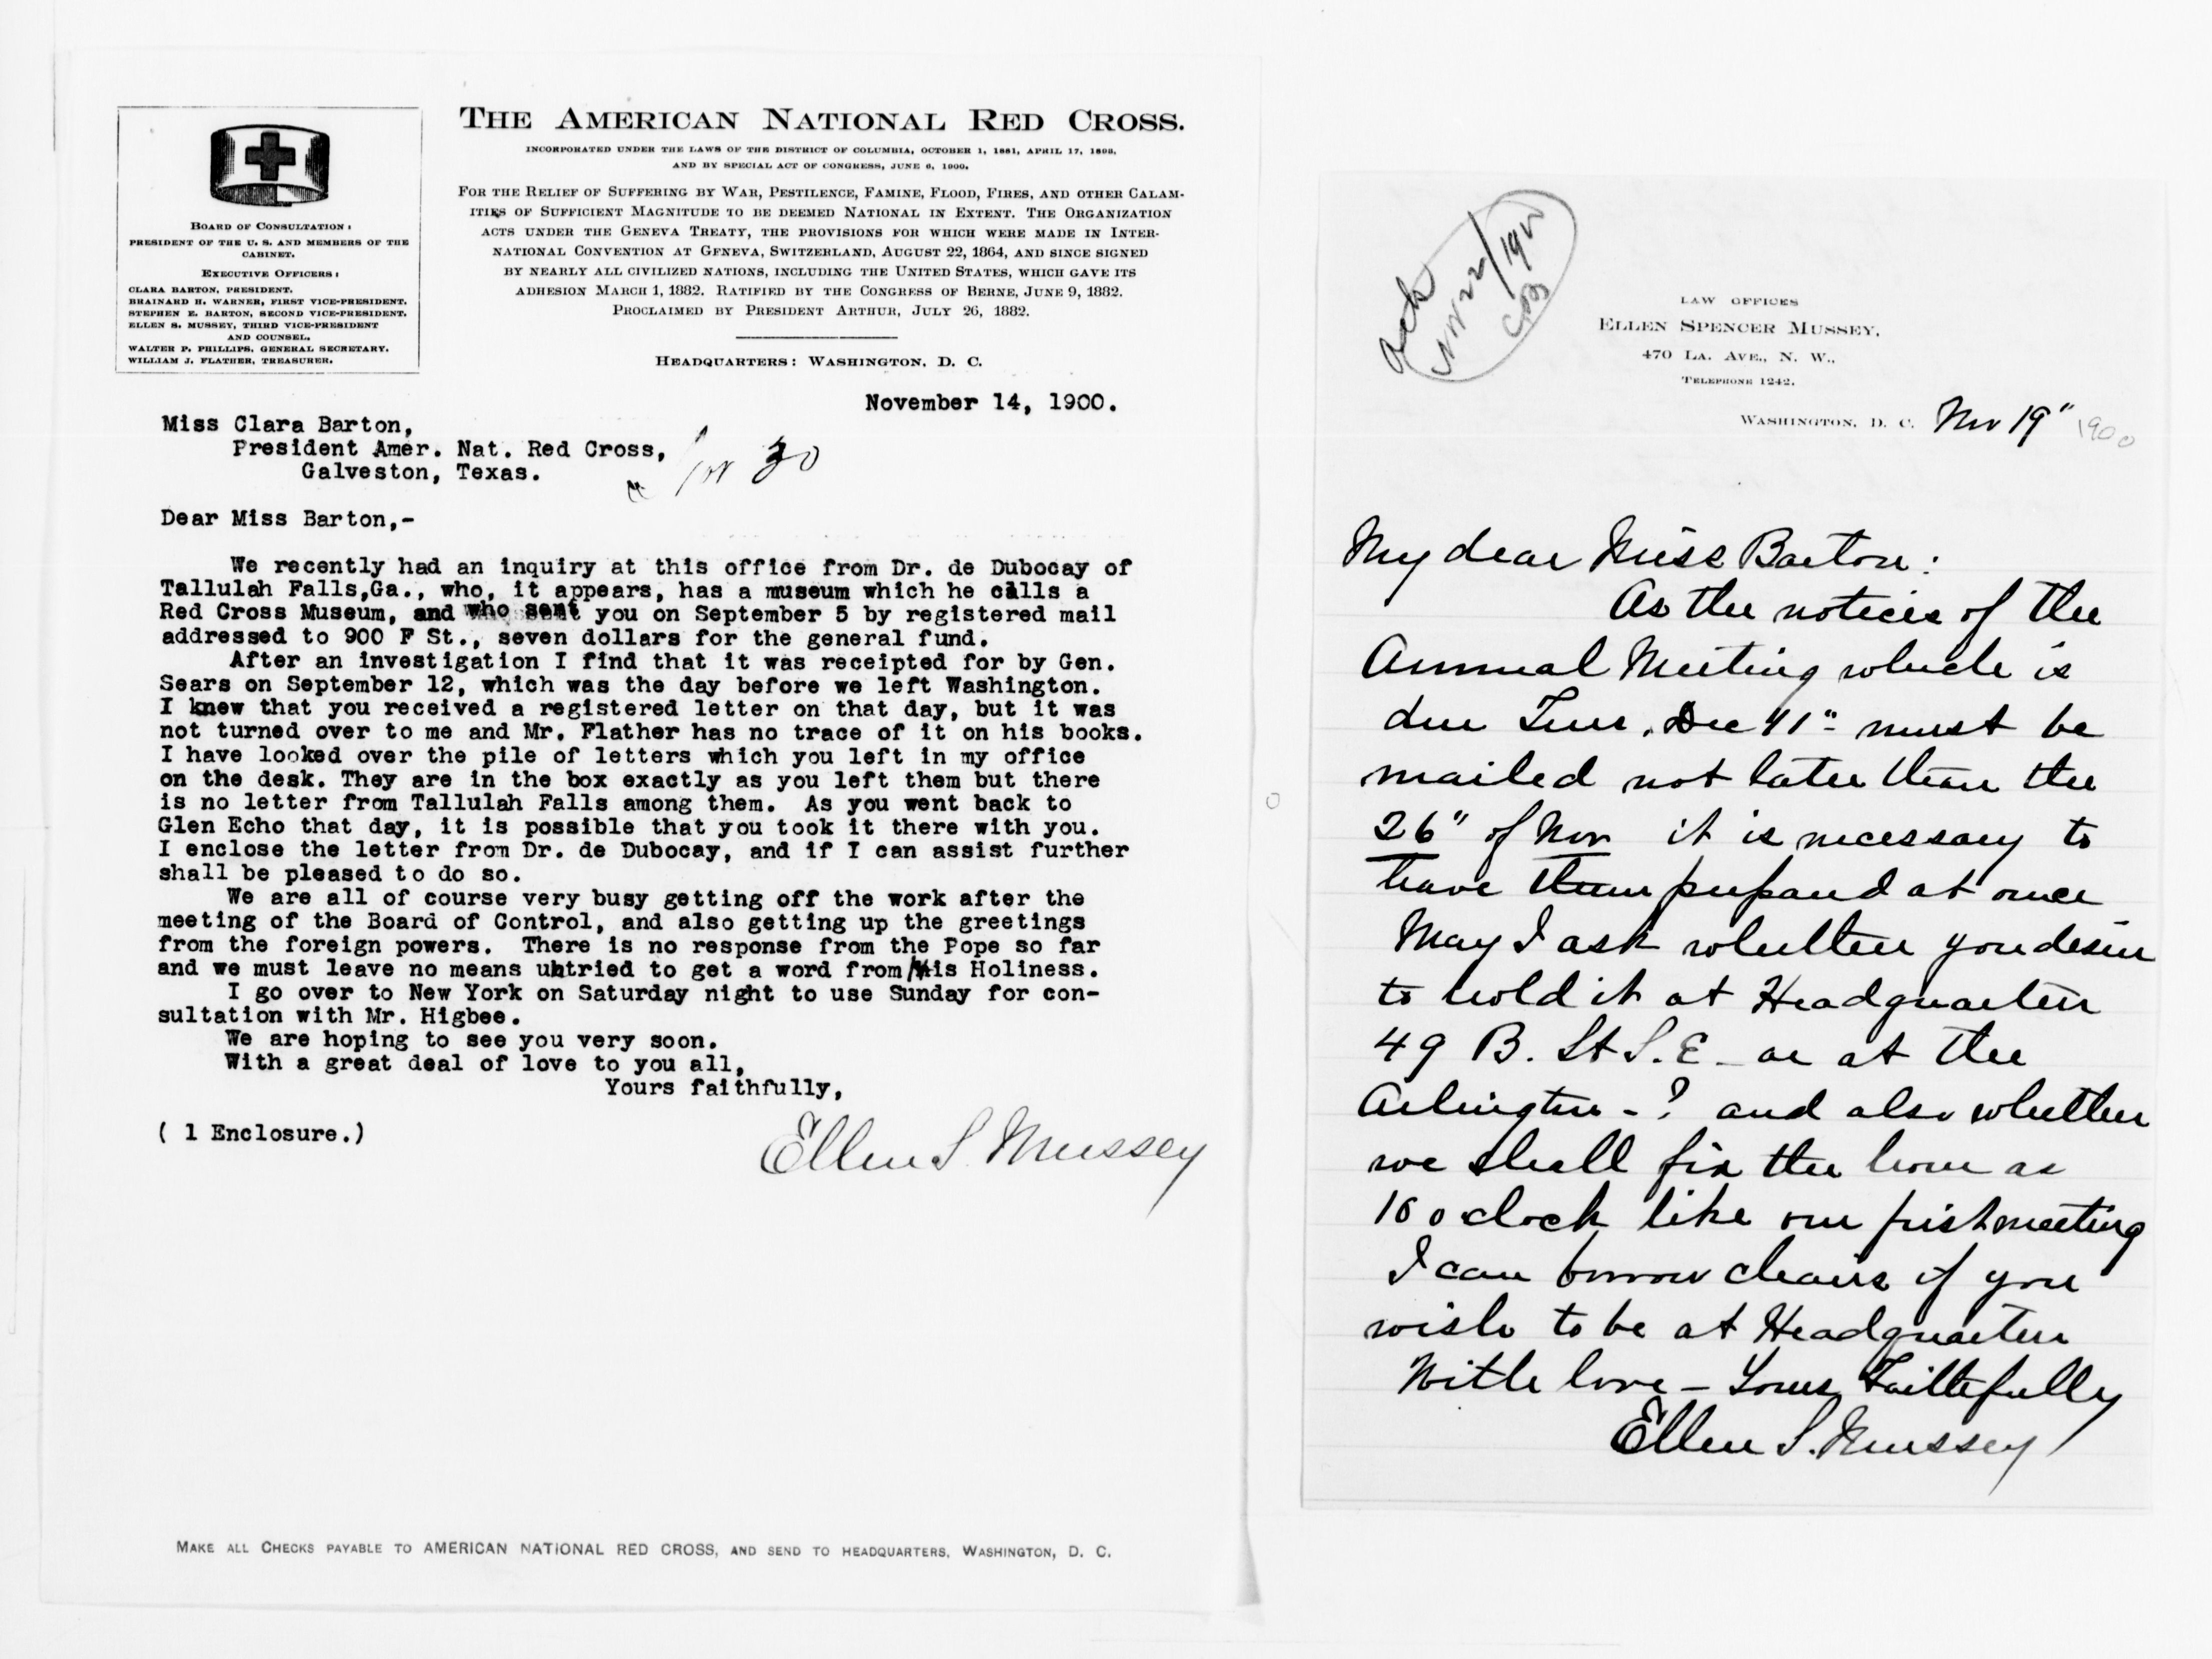 THE AMERICAN NATIONAL RED CROSS.
INCORPORATED UNDER THE LAWS OF THE DISTRICT OF COLUMBIA, OCTOBER 1, 1881, APRIL 17, 1893,
AND BY SPECIAL ACT OF CONGRESS, JUNE 6, 1900,
FOR THE RELIEF OF SUFFERING BY WAR, PESTILENCE, FAMINE, FLOOD, FIRES, AND OTHER CALAM-
ITIES OF SUFFICIENT MAGNITUDE TO BE DEEMED NATIONAL IN EXTENT. THE ORGANIZATION
ACTS UNDER THE GENEVA TREATY, THE PROVISIONS FOR WHICH WERE MADE IN INTER-
NATIONAL CONVENTION AT GENEVA, SWITZERLAND, AUGUST 22, 1864, AND SINCE SIGNED
BY NEARLY ALL CIVILIZED NATIONS, INCLUDING THE UNITED STATES, WHICH GAVE ITS
ADHESION MARCH 1, 1882. RATIFIED BY THE CONGRESS OF BERNE, JUNE 9, 1882.
PROCLAIMED BY PRESIDENT ARTHUR, JULY 26, 1882.
HEADQUARTERS: WASHINGTON, D. C.
BOARD OF CONSULTATION:
PRESIDENT OF THE U. S. AND MEMBERS OF THE
CABINET.
EXECUTIVE OFFICERS:
CLARA BARTON, PRESIDENT.
BRAINARD H. WARNER, FIRST VICE-PRESIDENT.
STEPHEN E. BARTON, SECOND VICE-PRESIDENT.
ELLEN S. MUSSEY, THIRD VICE-PRESIDENT
AND COUNSEL.
WALTER P. PHILLIPS, GENERAL SECRETARY.
WILLIAM J. FLATHER, TREASURER.
November 14, 1900.
Miss Clara Barton,
President Amer. Nat. Red Cross,
Galveston, Texas.
Nov 30
Dear Miss Barton,-
We recently had an inquiry at this office from Dr. de Dubocay of
Tallulah Falls,Ga., who, it appears, has a museum which he calls a
Red Cross Museum, and who sent you on September 5 by registered mail
addressed to 900 F St., seven dollars for the general fund.
After an investigation I find that it was receipted for by Gen.
Sears on September 12, which was the day before we left Washington.
I knew that you received a registered letter on that day, but it was
not turned over to me and Mr. Flather has no trace of it on his books.
I have looked over the pile of letters which you left in my office
on the desk. They are in the box exactly as you left them but there
is no letter from Tallulah Falls among them. As you went back to
Glen Echo that day, it is possible that you took it there with you.
I enclose the letter from Dr. de Dubocay, and if I can assist further
shall be pleased to do so.
We are all of course very busy getting off the work after the
meeting of the Board of Control, and also getting up the greetings
from the foreign powers. There is no response from the Pope so far
and we must leave no means untried to get a word from His Holiness.
I go over to New York on Saturday night to use Sunday for con-
sultation with Mr. Higbee.
We are hoping to see you very soon.
With a great deal of love to you all,
Yours faithfully,
( 1 Enclosure.)
Ellen S. Mussey
MAKE ALL CHECKS PAYABLE TO AMERICAN NATIONAL RED CROSS, AND SEND TO HEADQUARTERS, WASHINGTON, D. C.
ack
Nov 22/1900
CB
LAW OFFICES
ELLEN SPENCER MUSSEY,
470 LA. AVE., N. W.,
TELEPHONE 1242.
WASHINGTON, D. C. Nov 19" 1900
My dear Miss Barton:
As the notices of the
Annual Meeting which is
due Tues. Dec 11" must be
mailed not later than the
26" of Nov it is necessary to
have them prepared at once
May I ask whether you desire
to hold it at Headquarters
49 B. St S.E - or at the
Arlington - ? and also whether
we shall fix the hour as
10 o'clock like our first meeting
I can borrow chairs if you
wish to be at Headquarters
With love - Yours Faithfully
Ellen S. Mussey